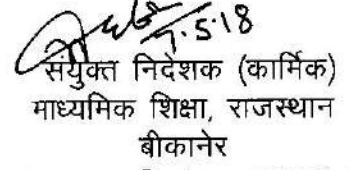 7.5.18
संयुक्त निदेशक (कार्मिक)
माध्यमिक शिक्षा, राजस्थान
बीकानेर